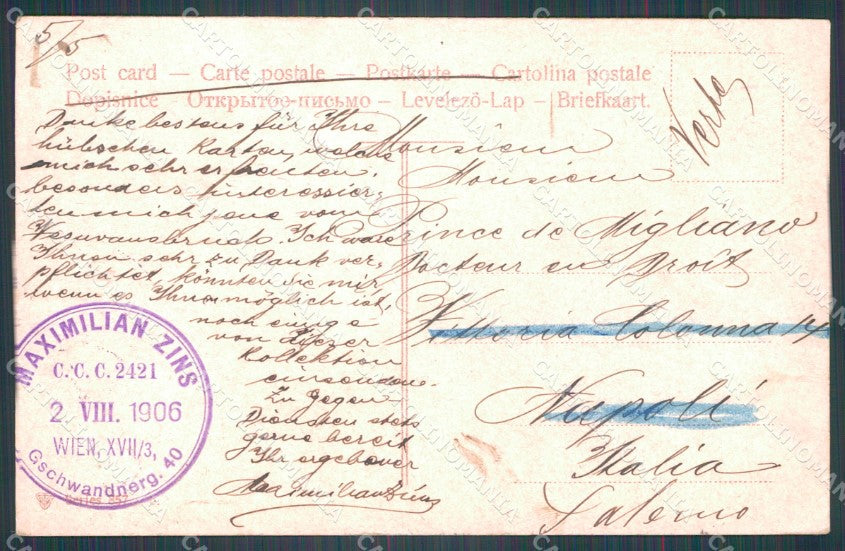 5/5
Post card — Carte postale — Postkarte — Cartolina postale
Dopisnice — Открытое письмо — Levelező-Lap — Briefkaart.
Verte
Danke bestens für Ihre
hübschen Karten, welche
mich sehr erfreuten.
besonders interessier-
ten mich jene vom
Vesuvausbruch. Ich wäre
Ihnen sehr zu Dank ver-
pflichtet, könnten Sie mir
wenn es Ihnen möglich ist,
noch einige
von dieser
Kollektion
einsenden.
Zu Gegen
Diensten stets
gerne bereit
Ihr ergebener
Maximilian Zins
Monsieur
Monsieur
Prince de Migliano
Docteur en Droit
Vittoria Colonna 14
Napoli
Italia
Salerno
MAXIMILIAN ZINS
C.C.C. 2421
2 VIII. 1906
WIEN, XVII/3,
Gschwandnerg. 40
CARTOLINOMANIA